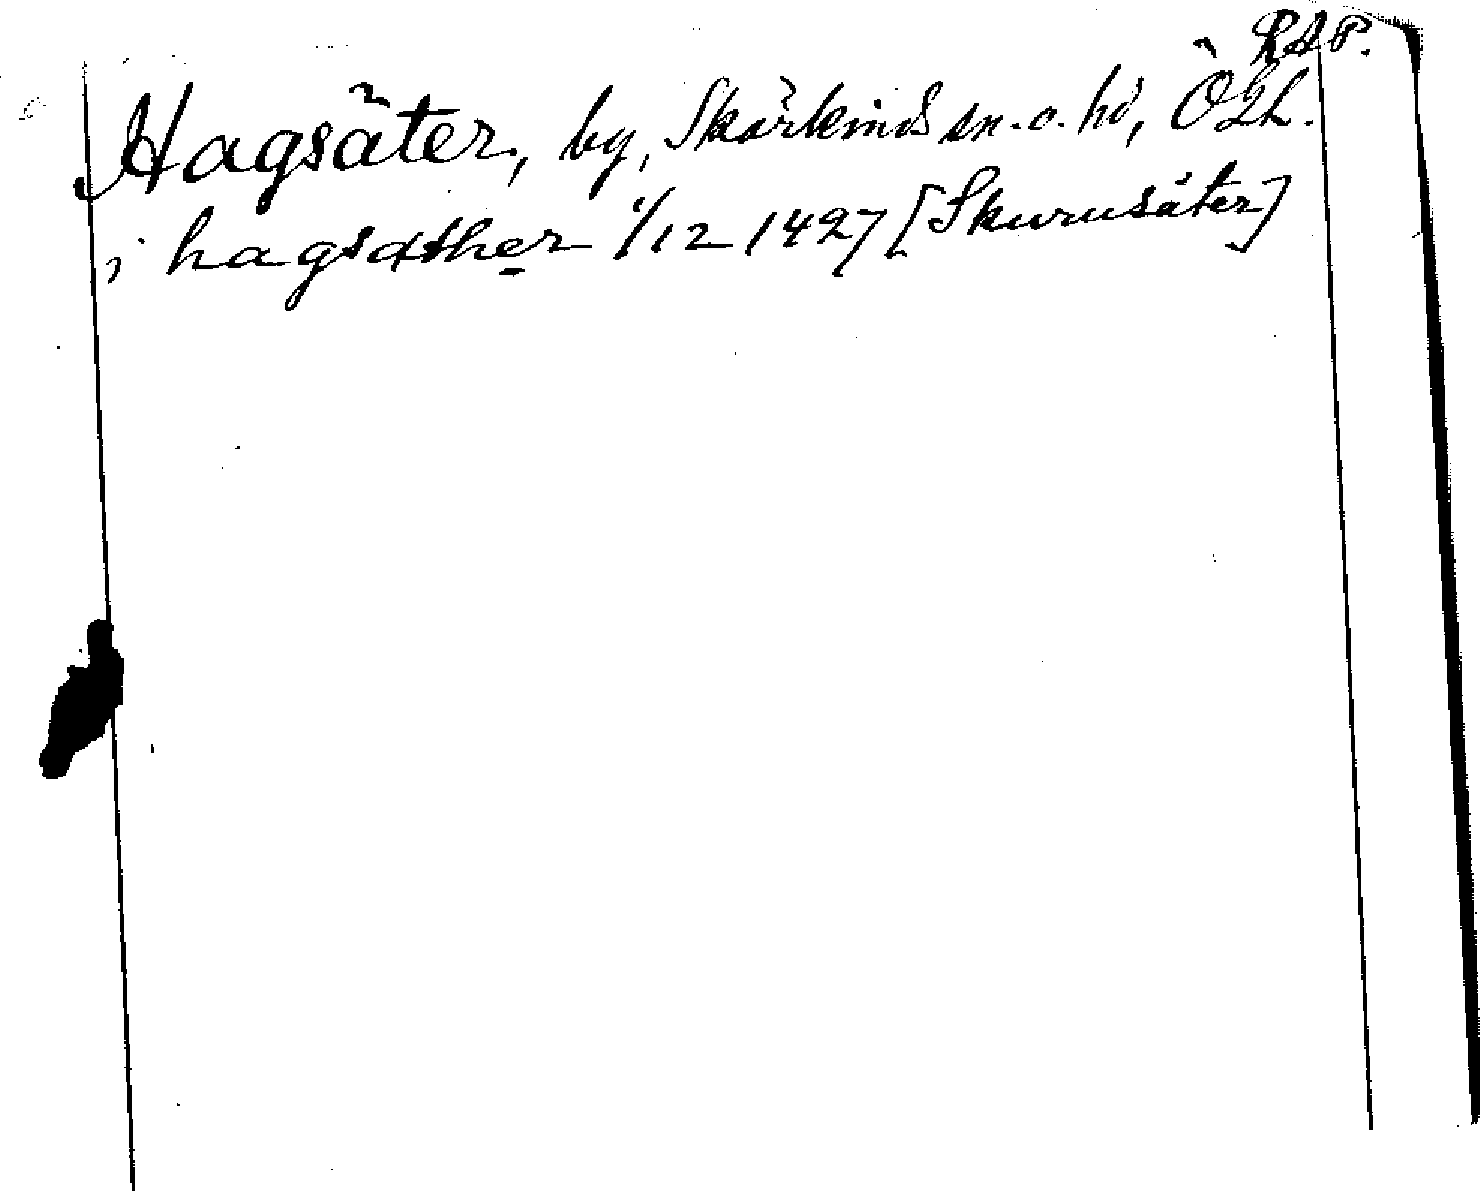 RAP.
Hagsäter, by, Skärkinds sn. o. hd, Ögl.
i hagsæther 1/12 1427 [Skurusäter]